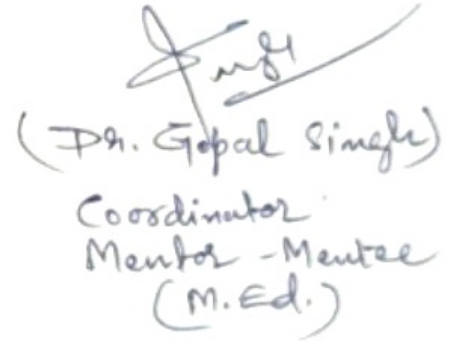 Singh
(Dr. Gopal Singh)
Coordinator
Mentor - Mentee
(M.Ed.)